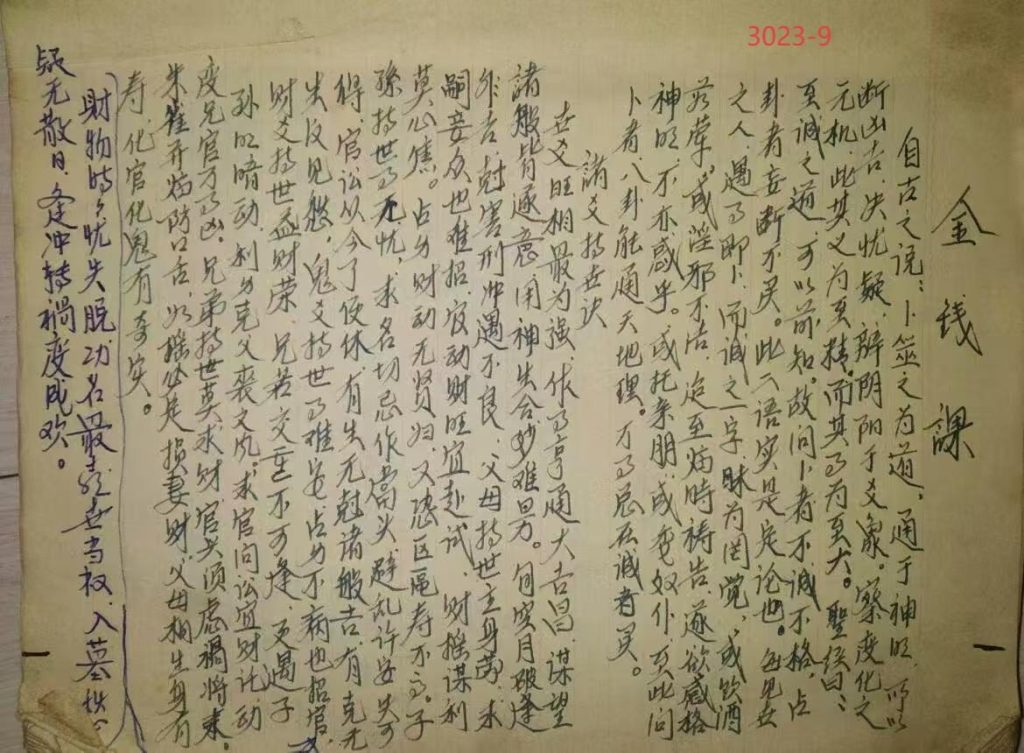 3023-9
金钱課
自古之说：卜筮之为道，通于神明，所以
断凶吉，决忧疑，辟阴阳于爻象。察度化之
元机，此其义为至精，而其为至大。聖侯曰：
至诚之道，可以前知。故问卜者不诚不格，占
卦者妄断不灵。此入语实是定论也。每见世
之人，遇即卜，而诚之一字，昧为罔觉，或饮酒
茹荤，或淫邪不洁，迨至临時祷告，遂欲感格
神明，不亦惑乎。或托亲朋，或委奴仆，至此问
卜者，八卦能通天地理。万总在诚者灵。
諸爻持世诀
世爻旺相最为强，作亨通大吉昌，谋望
諸般皆遂意，用神生合妙难量。旬空月破逢
非吉，尅害刑冲遇不良，父母持世主身劳，求
嗣妾众也难招，官动财旺宜赴试，财摇谋利
莫心焦。占身财动无贤妇，又恐区寿不高。子
孫持世无忧，求名切忌作当头，避乱许安失可
得，官讼从今了便休，有生无尅諸般吉，有克无
生反见愁，鬼爻持世难安，占身不病也招官，
财爻持世益财荣，兄若交重不可逢，更遇子
孙明暗动，利身克父丧文风，求官问讼宜财
动
变兄官万凶，兄弟持世莫求财，官兴须虑禍将来。
朱雀并临防口舌，如摇必是损妻财，父母相生身有
寿，化官化鬼有奇灾。
財物時忧失脱，功名最世当权，入墓
疑无散日，逢冲转禍变成欢。